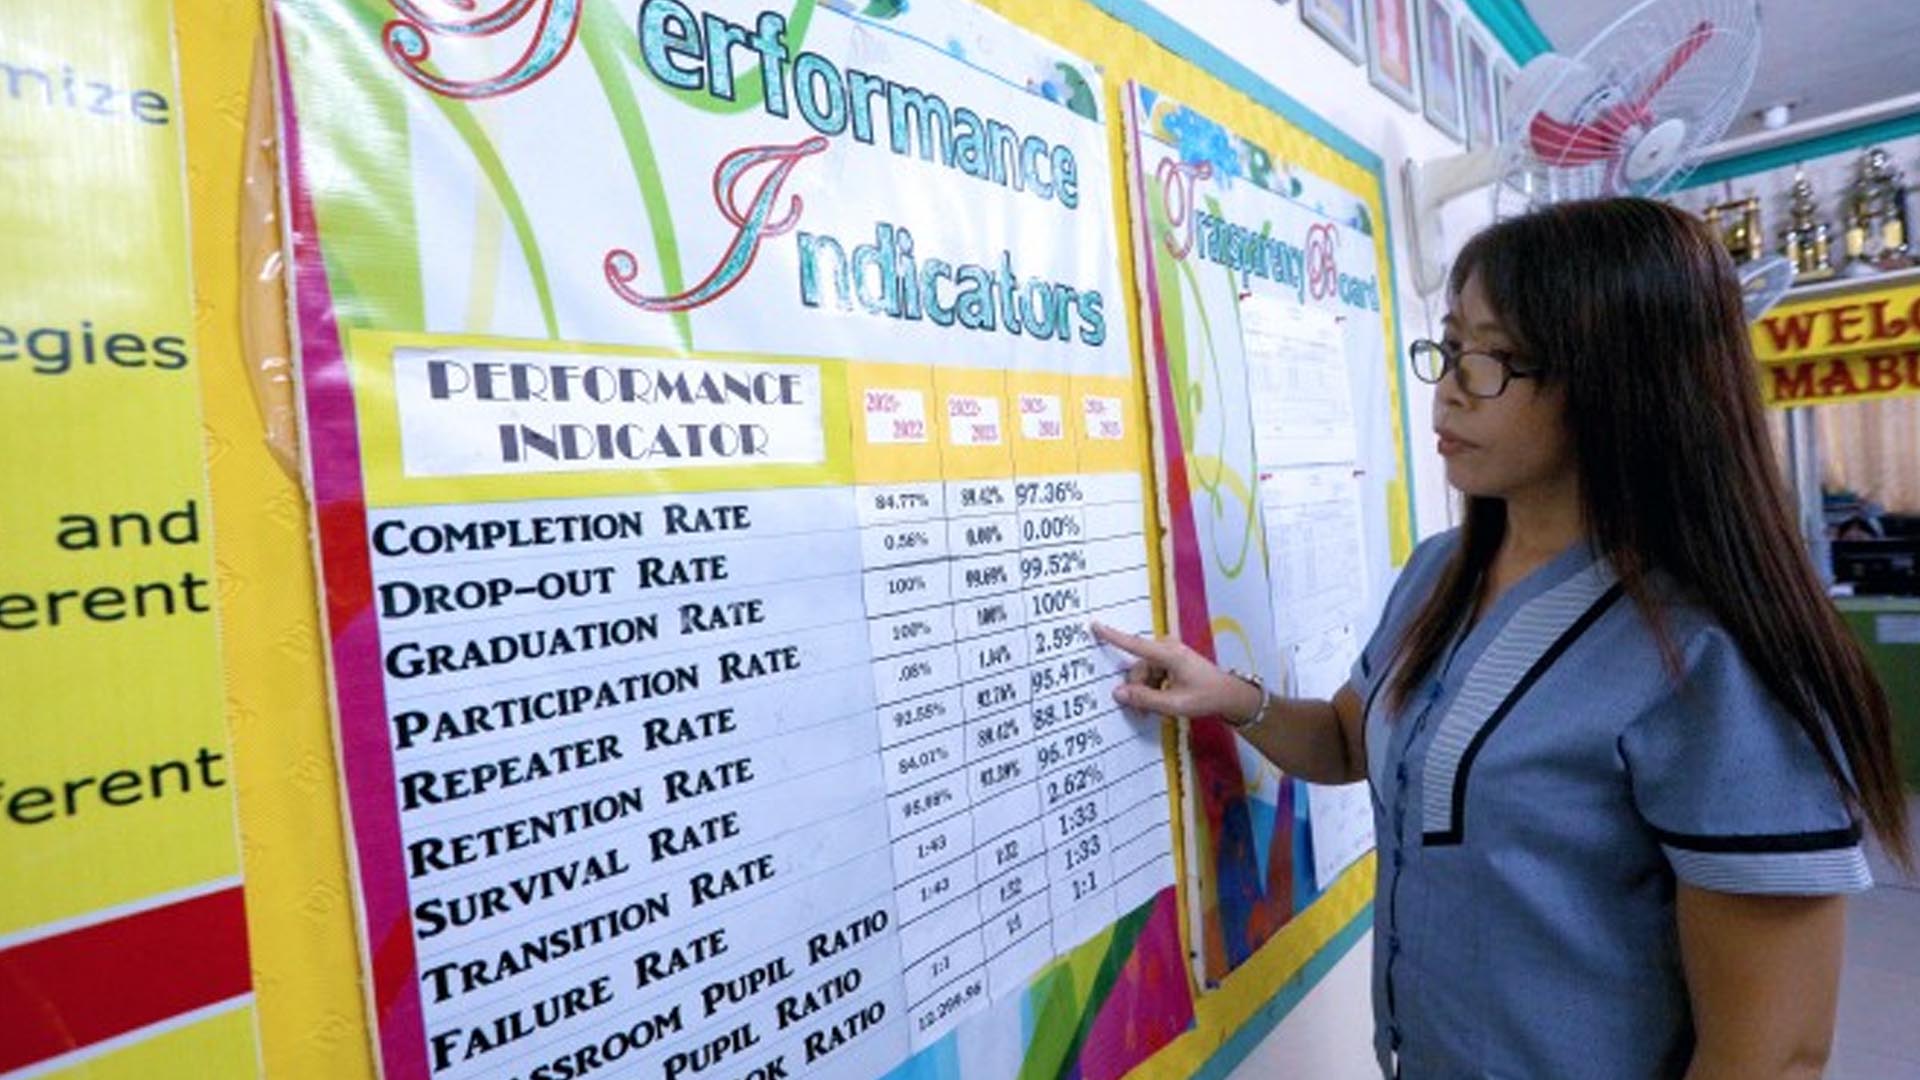 mize
egies
and
erent
ferent
Performance
Indicators
PERFORMANCE
INDICATOR
2021-
2022
2022-
2023
COMPLETION RATE 84.77% 97.36%
DROP-OUT RATE 0.56% 0.00% 0.00%
GRADUATION RATE 100% 99.52%
PARTICIPATION RATE 100% 100% 100%
REPEATER RATE .08% 2.59%
RETENTION RATE 92.55% 95.47%
SURVIVAL RATE 88.15%
TRANSITION RATE 96.79%
FAILURE RATE 2.62%
ASSROOM PUPIL RATIO 1:43 1:32 1:33
PUPIL RATIO 1:43 1:32 1:33
OK RATIO 1:1 1:1 1:1
Transparency Board
WELC
MABU